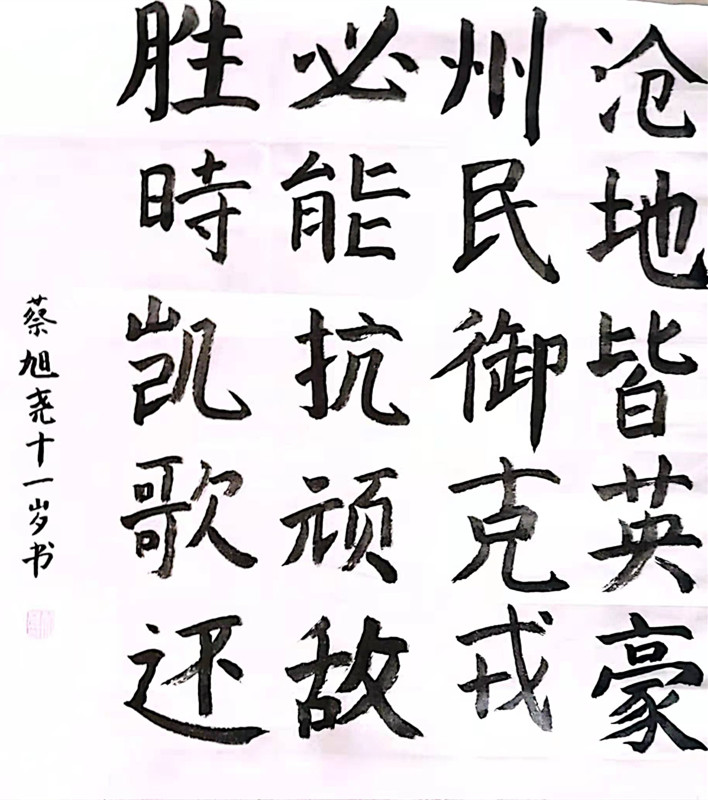 沧地皆英豪
州民御克戎
必能抗顽敌
胜時凯歌还
蔡旭尧十一岁书